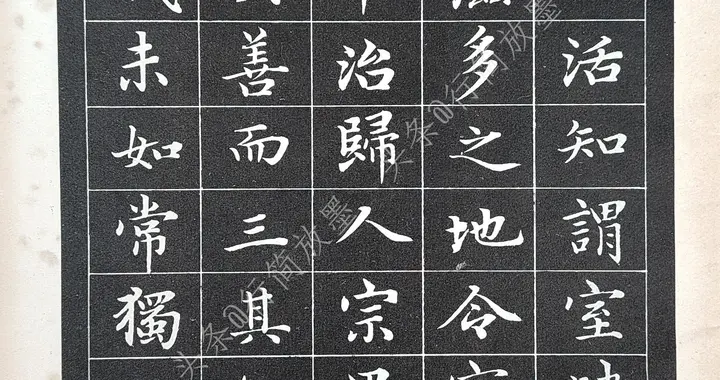 活知謂室
多之地令
治歸人宗
善而三其
未如常獨
头条@行简放墨
头条@行简放墨